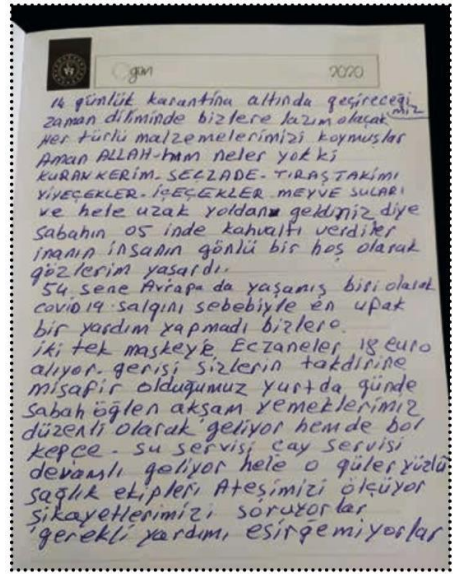 gün 2020
14 günlük karantina altında geçireceği
miz
zaman diliminde bizlere lazım olacak
Her türlü malzemelerimizi koymuşlar
Aman ALLAH-ım neler yok ki
KURAN KERİM- SECZADE- TIRAŞ TAKIMI
YİYEÇEKLER- İÇEÇEKLER MEYVE SULARI
ve hele uzak yoldan geldiniz diye
sabahın 05 inde kahvaltı verdiler
inanın insanın gönlü bir hoş olarak
gözlerim yaşardı.
54 sene Avrapa da yaşamış biri olarak
covid 19 salgını sebebiyle en ufak
bir yardım yapmadı bizlere.
iki tek maskeye Eczaneler 18 euro
alıyor. gerisi sizlerin takdirine
misafir olduğumuz yurtda günde
sabah öğlen akşam yemeklerimiz
düzenli olarak geliyor hemde bol
kepçe. su servisi çay servisi
devamlı geliyor hele o güler yüzlü
sağlık ekipleri Ateşimizi ölçüyor
şikayetlerimizi soruyorlar
gerekli yardımı esirgemiyorlar